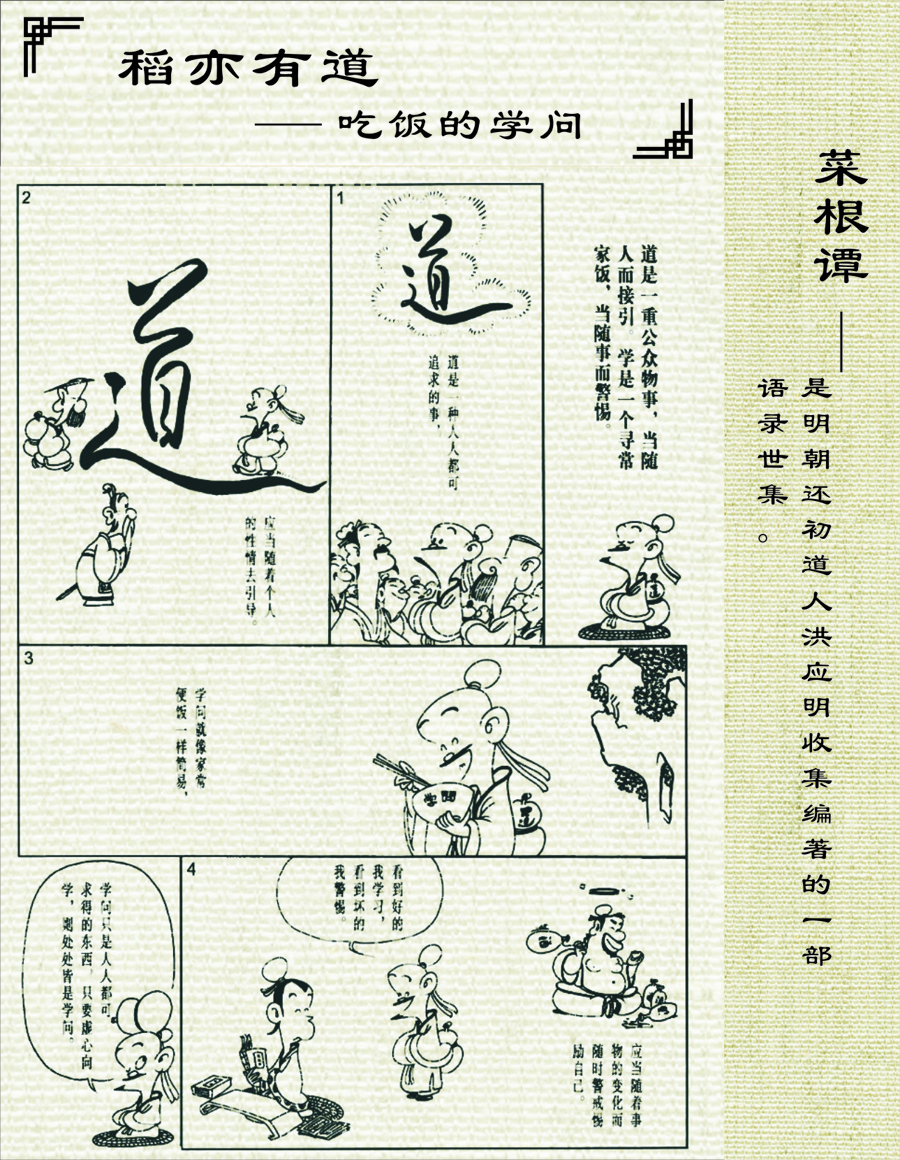 稻亦有道
——吃饭的学问
菜根谭——
是明朝还初道人洪应明收集编著的一部
语录世集。
道是一重公众物事，当随
人而接引。学是一个寻常
家饭，当随事而警惕。
1
道
道是一种人人都可
追求的事，
2
道
应当随着个人
的性情去引导。
3
学问就像家常
便饭一样简易，
学問
4
看到好的
我学习，
看到坏的
我警惕。
应当随着事
物的变化而
随时警戒惕
励自己。
学问只是人人都可
求得的东西，只要虚心向
学，则处处皆是学问。